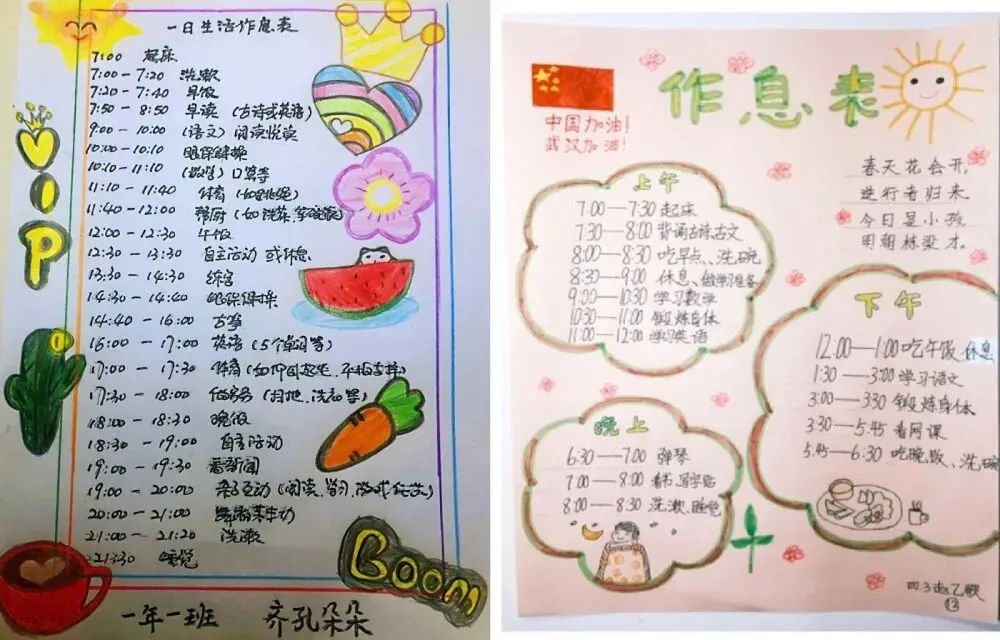 一日生活作息表
7:00 起床
7:00 - 7:20 洗漱
7:20 - 7:40 早饭
7:50 - 8:50 早读 (古诗或英语)
9:00 - 10:00 (语文) 阅读悦读
10:00 - 10:10 眼保健操
10:10 - 11:10 (数学) 口算等
11:10 - 11:40 体育 (如跳绳)
11:40 - 12:00 帮厨 (如洗菜、拿碗筷)
12:00 - 12:30 午饭
12:30 - 13:30 自主活动 或休息
13:30 - 14:30
14:30 - 14:40 眼保健操
14:40 - 16:00 古筝
16:00 - 17:00 英语 (5个单词等)
17:00 - 17:30 体育 (如仰卧起坐、平板支撑)
17:30 - 18:00 做家务 (扫地、洗衣等)
18:00 - 18:30 晚饭
18:30 - 19:00 自主活动
19:00 - 19:30 看新闻
19:00 - 20:00 亲子互动 (阅读、学习、游戏
20:00 - 21:00
21:00 - 21:20 洗漱
21:30 睡觉
VIP
BOOM
一年一班 齐孔朵朵
作息表
中国加油!
武汉加油!
春天花会开,
逆行者归来,
今日是小孩
明朝栋梁才。
上午
7:00—7:30 起床
7:30—8:00 背诵古诗、古文
8:00—8:30 吃早点、洗碗
8:30—9:00 休息、做学习准备
9:00—10:30 学习数学
10:30—11:00 锻炼身体
11:00—12:00 学习英语
下午
12:00—1:00 吃午饭、休息
1:30—3:00 学习语文
3:00—3:30 锻炼身体
3:30—5:45 看网课
5:45—6:30 吃晚饭、洗碗
晚上
6:30—7:00 弹琴
7:00—8:00 看书、写字帖
8:00—8:30 洗漱、睡觉
四.3 赵乙歌
⑬